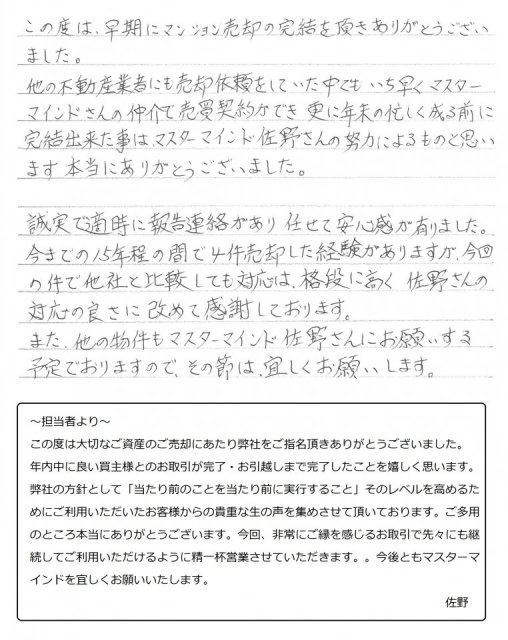 この度は、早期にマンション売却の完結を頂きありがとうござい
ました。
他の不動産業者にも売却依頼をしていた中でも いち早くマスター
マインドさんの仲介で売買契約ができ 更に年末の忙しく成る前に
完結出来た事は、マスターマインド佐野さんの努力によるものと思い
ます 本当にありがとうございました。
誠実で適時に報告連絡があり 任せて安心感が有りました。
今までの15年程の間で4件売却した経験がありますが、今回
の件で他社と比較しても対応は、格段に高く 佐野さんの
対応の良さに 改めて感謝しております。
また、他の物件もマスターマインド佐野さんにお願いする
予定でおりますので、その節は、宜しくお願いします。
～担当者より～
この度は大切なご資産のご売却にあたり弊社をご指名頂きありがとうございました。
年内中に良い買主様とのお取引が完了・お引越しまで完了したことを嬉しく思います。
弊社の方針として「当たり前のことを当たり前に実行すること」そのレベルを高めるた
めにご利用いただいたお客様からの貴重な生の声を集めさせて頂いております。ご多用
のところ本当にありがとうございます。今回、非常にご縁を感じるお取引で先々にも継
続してご利用いただけるように精一杯営業させていただきます。。今後ともマスターマ
インドを宜しくお願いいたします。
佐野